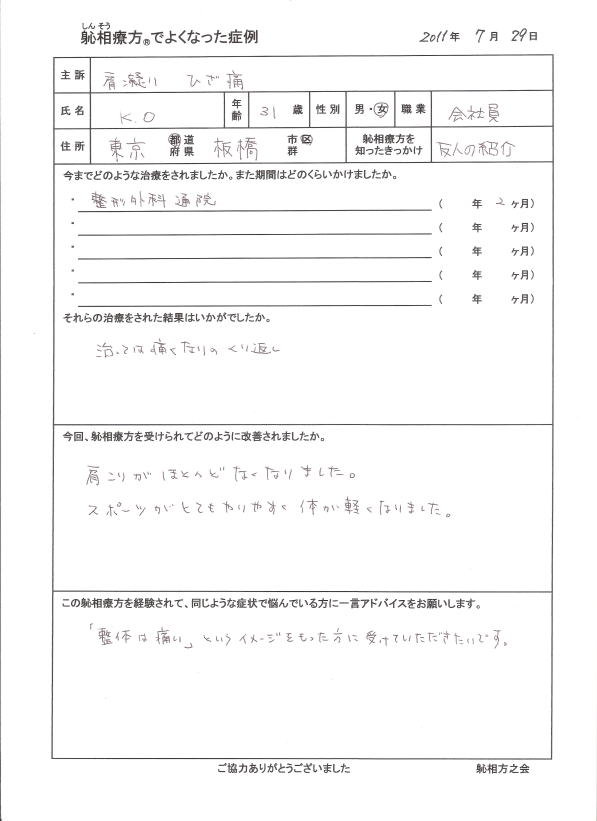 しん そう
躰相療方®でよくなった症例 2011年 7月 29日
主訴 肩凝り ひざ痛
氏名 K.O 年齢 31 歳 性別 男・女 職業 会社員
住所 東京 都道府県 板橋 市区群 躰相療方を知ったきっかけ 友人の紹介
今までどのような治療をされましたか。また期間はどのくらいかけましたか。
・整形外科通院 ( 年 2 ヶ月)
・ ( 年 ヶ月)
・ ( 年 ヶ月)
・ ( 年 ヶ月)
・ ( 年 ヶ月)
それらの治療をされた結果はいかがでしたか。
治っては痛くなりの くり返し
今回、躰相療方を受けられてどのように改善されましたか。
肩こりが ほとんど なくなりました。
スポーツがとてもやりやすく 体が軽くなりました。
この躰相療方を経験されて、同じような症状で悩んでいる方に一言アドバイスをお願いします。
「整体は痛い」というイメージをもった方に受けていただきたいです。
ご協力ありがとうございました 躰相方之会